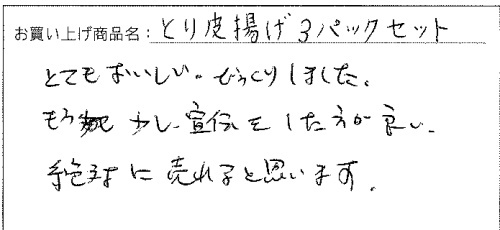 お買い上げ商品名:とり皮揚げ3パックセット
とてもおいしい。びっくりしました。
もう少し宣伝をした方が良い。
絶対に売れると思います。